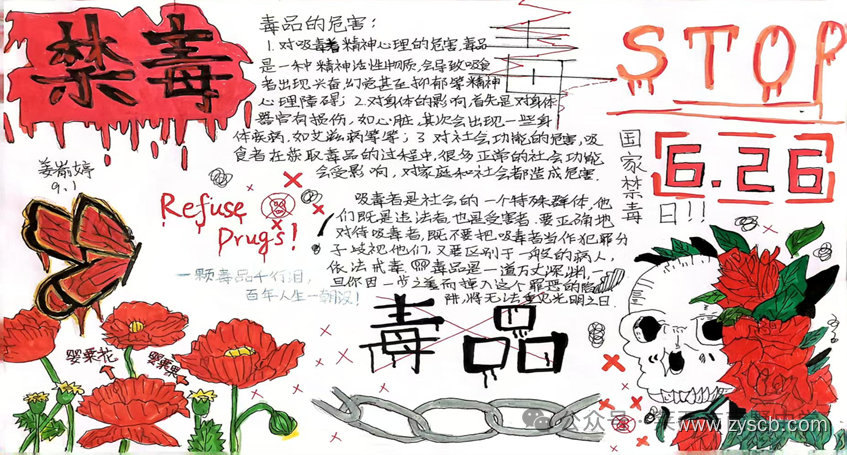 禁毒
毒品的危害:
1.对吸毒者精神心理的危害.毒品
是一种精神活性物质,会导致吸食
者出现兴奋,幻觉甚至抑郁等精神
心理障碍;2.对身体的影响,首先是对身体
器官有损伤,如心脏,其次会出现一些身
体疾病,如艾滋病等等;3.对社会功能的危害,吸
食者在获取毒品的过程中,很多正常的社会功能
会受影响,对家庭和社会都造成危害.
STOP
6.26
国家禁毒
日!!
姜嵛婷
9.1
Refuse
Drugs!
吸毒者是社会的一个特殊群体,他
们既是违法者,也是受害者.要正确地
对待吸毒者,既不要把吸毒者当作犯罪分
子歧视他们,又要区别于一般的病人,
依法戒毒.毒品是一道万丈深渊,一
旦你因一步之差而掉入这个罪恶的陷
阱,将无法重见光明之日.
一颗毒品千行泪,
百年人生一朝毁!
毒品
罂粟花
罂粟果
公众号
www.zyscb.com